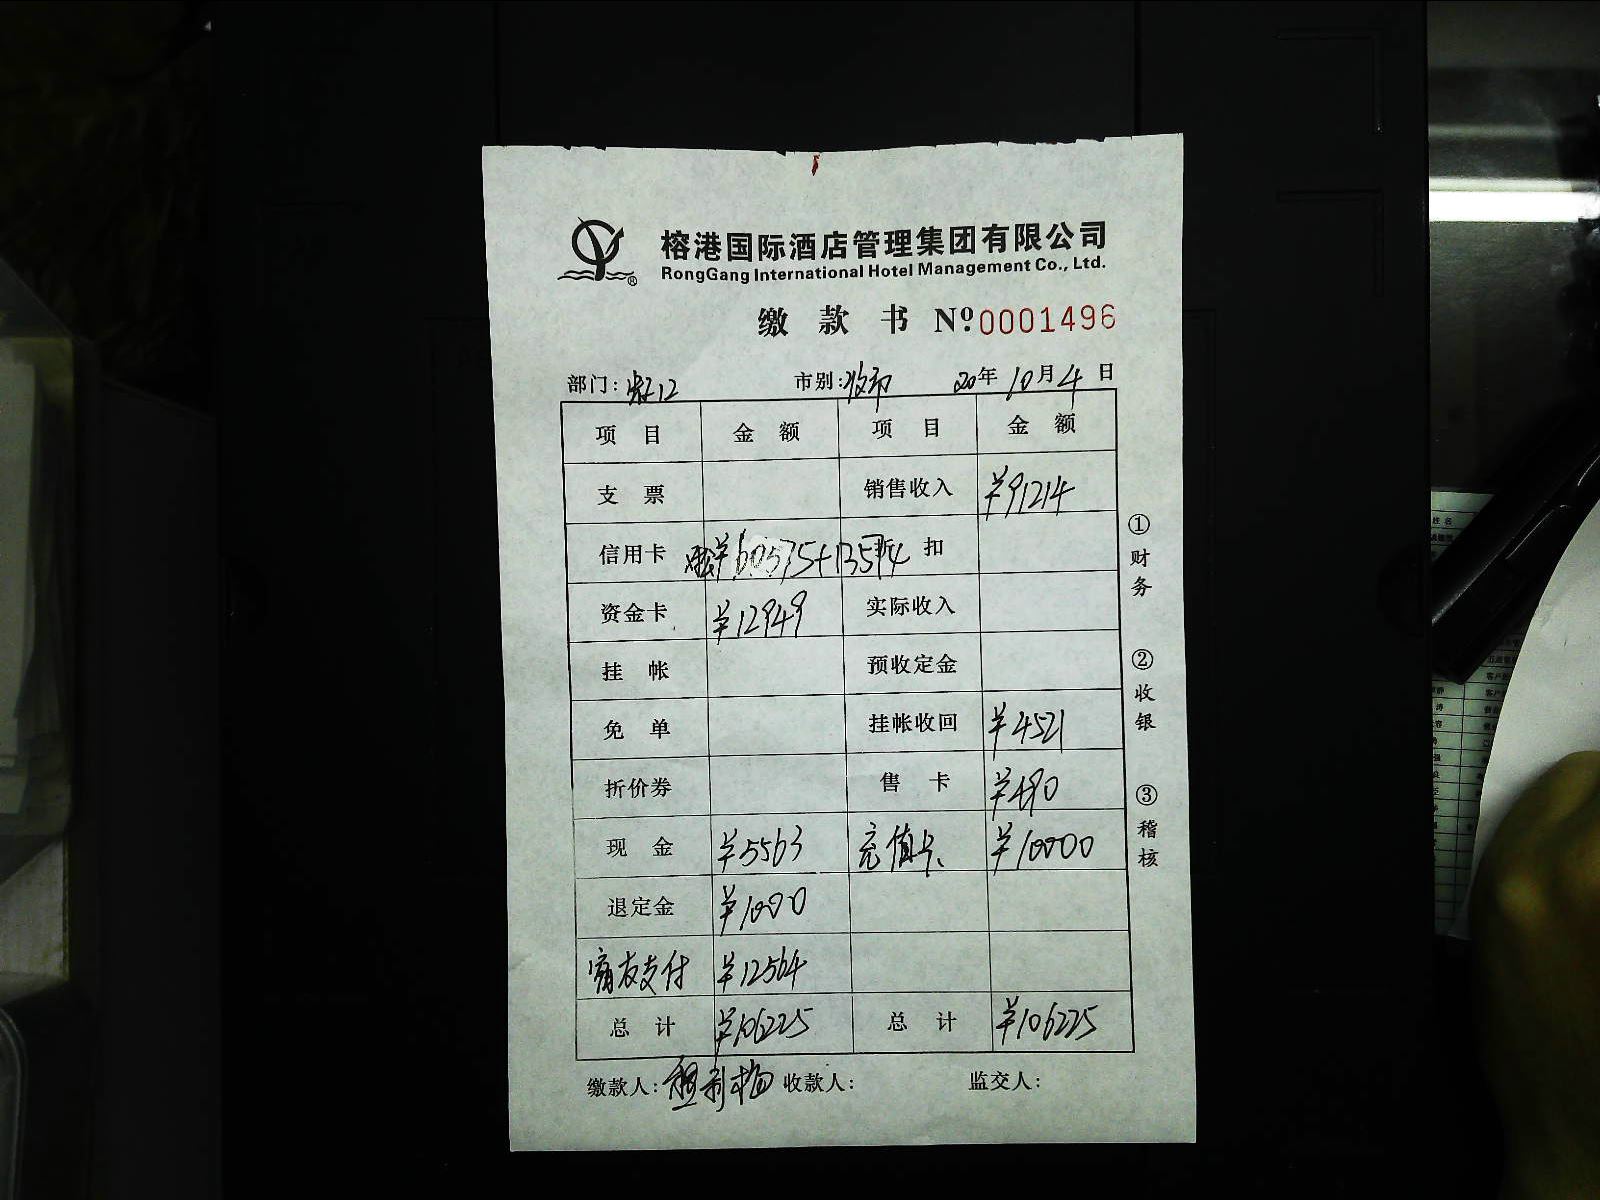 榕港国际酒店管理集团有限公司
RongGang International Hotel Management Co., Ltd.
缴 款 书 Nº.0001496
部门: 市别: 20年10月4日
项 目 金 额 项 目 金 额
支 票 销售收入 ¥91214
信用卡 ¥60575+13574 折 扣
资金卡 ¥12949 实际收入
挂 帐 预收定金
免 单 挂帐收回 ¥4521
折价券 售 卡 ¥490
现 金 ¥5563 充值卡 ¥10000
退定金 ¥1000
支付 ¥12564
总 计 ¥106225 总 计 ¥106225
缴款人: 收款人: 监交人:
①财务
②收银
③稽核